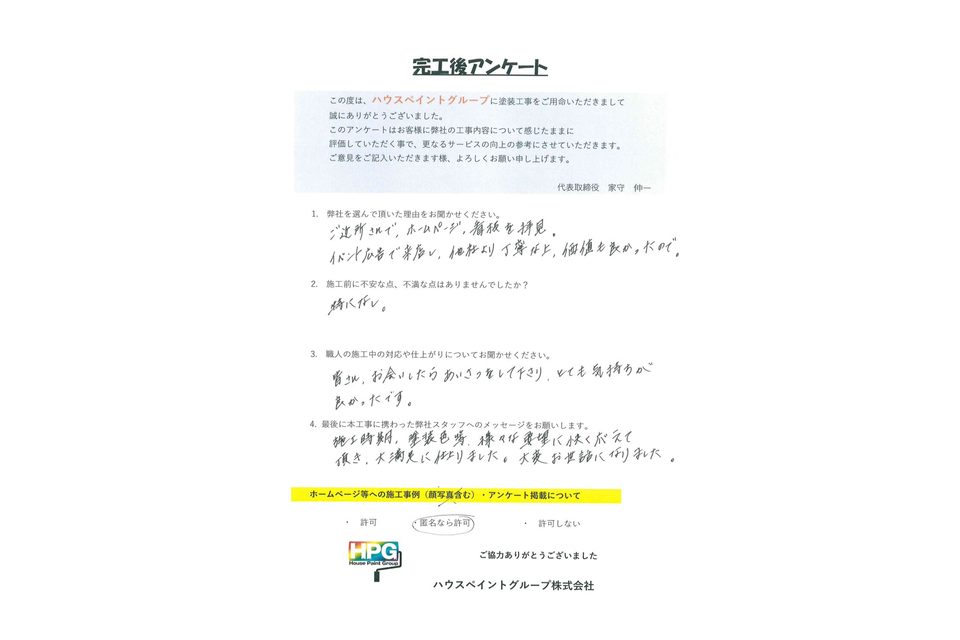 完工後アンケート
この度は、ハウスペイントグループに塗装工事をご用命いただきまして
誠にありがとうございました。
このアンケートはお客様に弊社の工事内容について感じたままに
評価していただく事で、更なるサービスの向上の参考にさせていただきます。
ご意見をご記入いただきます様、よろしくお願い申し上げます。
代表取締役 家守 伸一
1. 弊社を選んで頂いた理由をお聞かせください。
ご近所さんで、ホームページ、看板を拝見。
イベント広告で来店し、他社より丁寧な上、価値も良かったので。
2. 施工前に不安な点、不満な点はありませんでしたか？
特になし。
3. 職人の施工中の対応や仕上がりについてお聞かせください。
皆さん、お会いしたらあいさつをして下さり、とても気持ちが
良かったです。
4. 最後に本工事に携わった弊社スタッフへのメッセージをお願いします。
施工時期、塗装色等、様々な要望に快く応えて
頂き、大満足に仕上りました。大変お世話になりました。
ホームページ等への施工事例（顔写真含む）・アンケート掲載について
・ 許可 ・匿名なら許可 ・ 許可しない
HPG
House Paint Group
ご協力ありがとうございました
ハウスペイントグループ株式会社